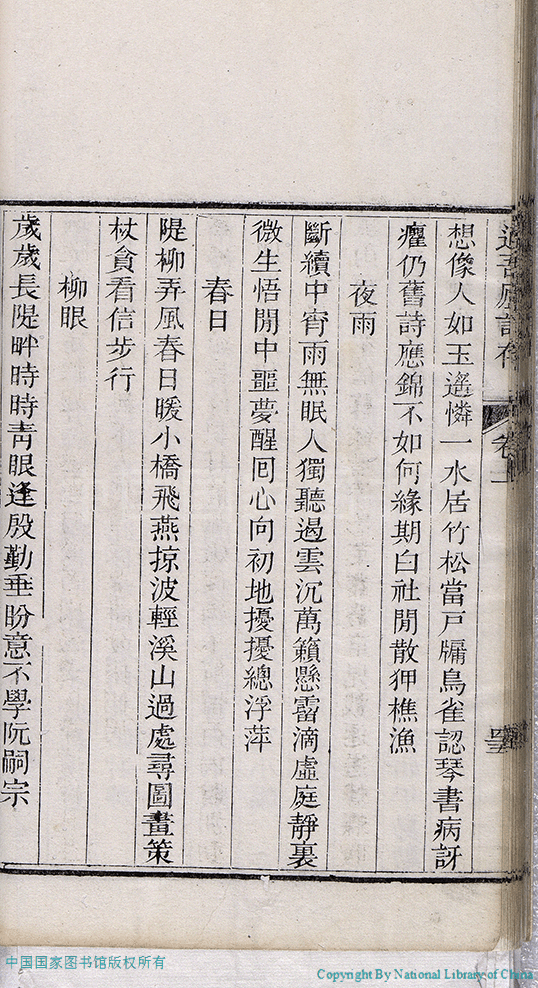 適吾廬詩存 卷二
想像人如玉遙憐一水居竹松當戶牖鳥雀認琴書病訝
癯仍舊詩應錦不如何緣期白社閒散狎樵漁
夜雨
斷續中宵雨無眠人獨聽遏雲沉萬籟懸霤滴虛庭靜裏
微生悟閒中噩夢醒回心向初地擾擾總浮萍
春日
隄柳弄風春日暖小橋飛燕掠波輕溪山過處尋圖畫策
杖貪看信步行
柳眼
歲歲長隄畔時時靑眼逢殷勤垂盼意不學阮嗣宗
中国国家图书馆版权所有
Copyright By National Library of China